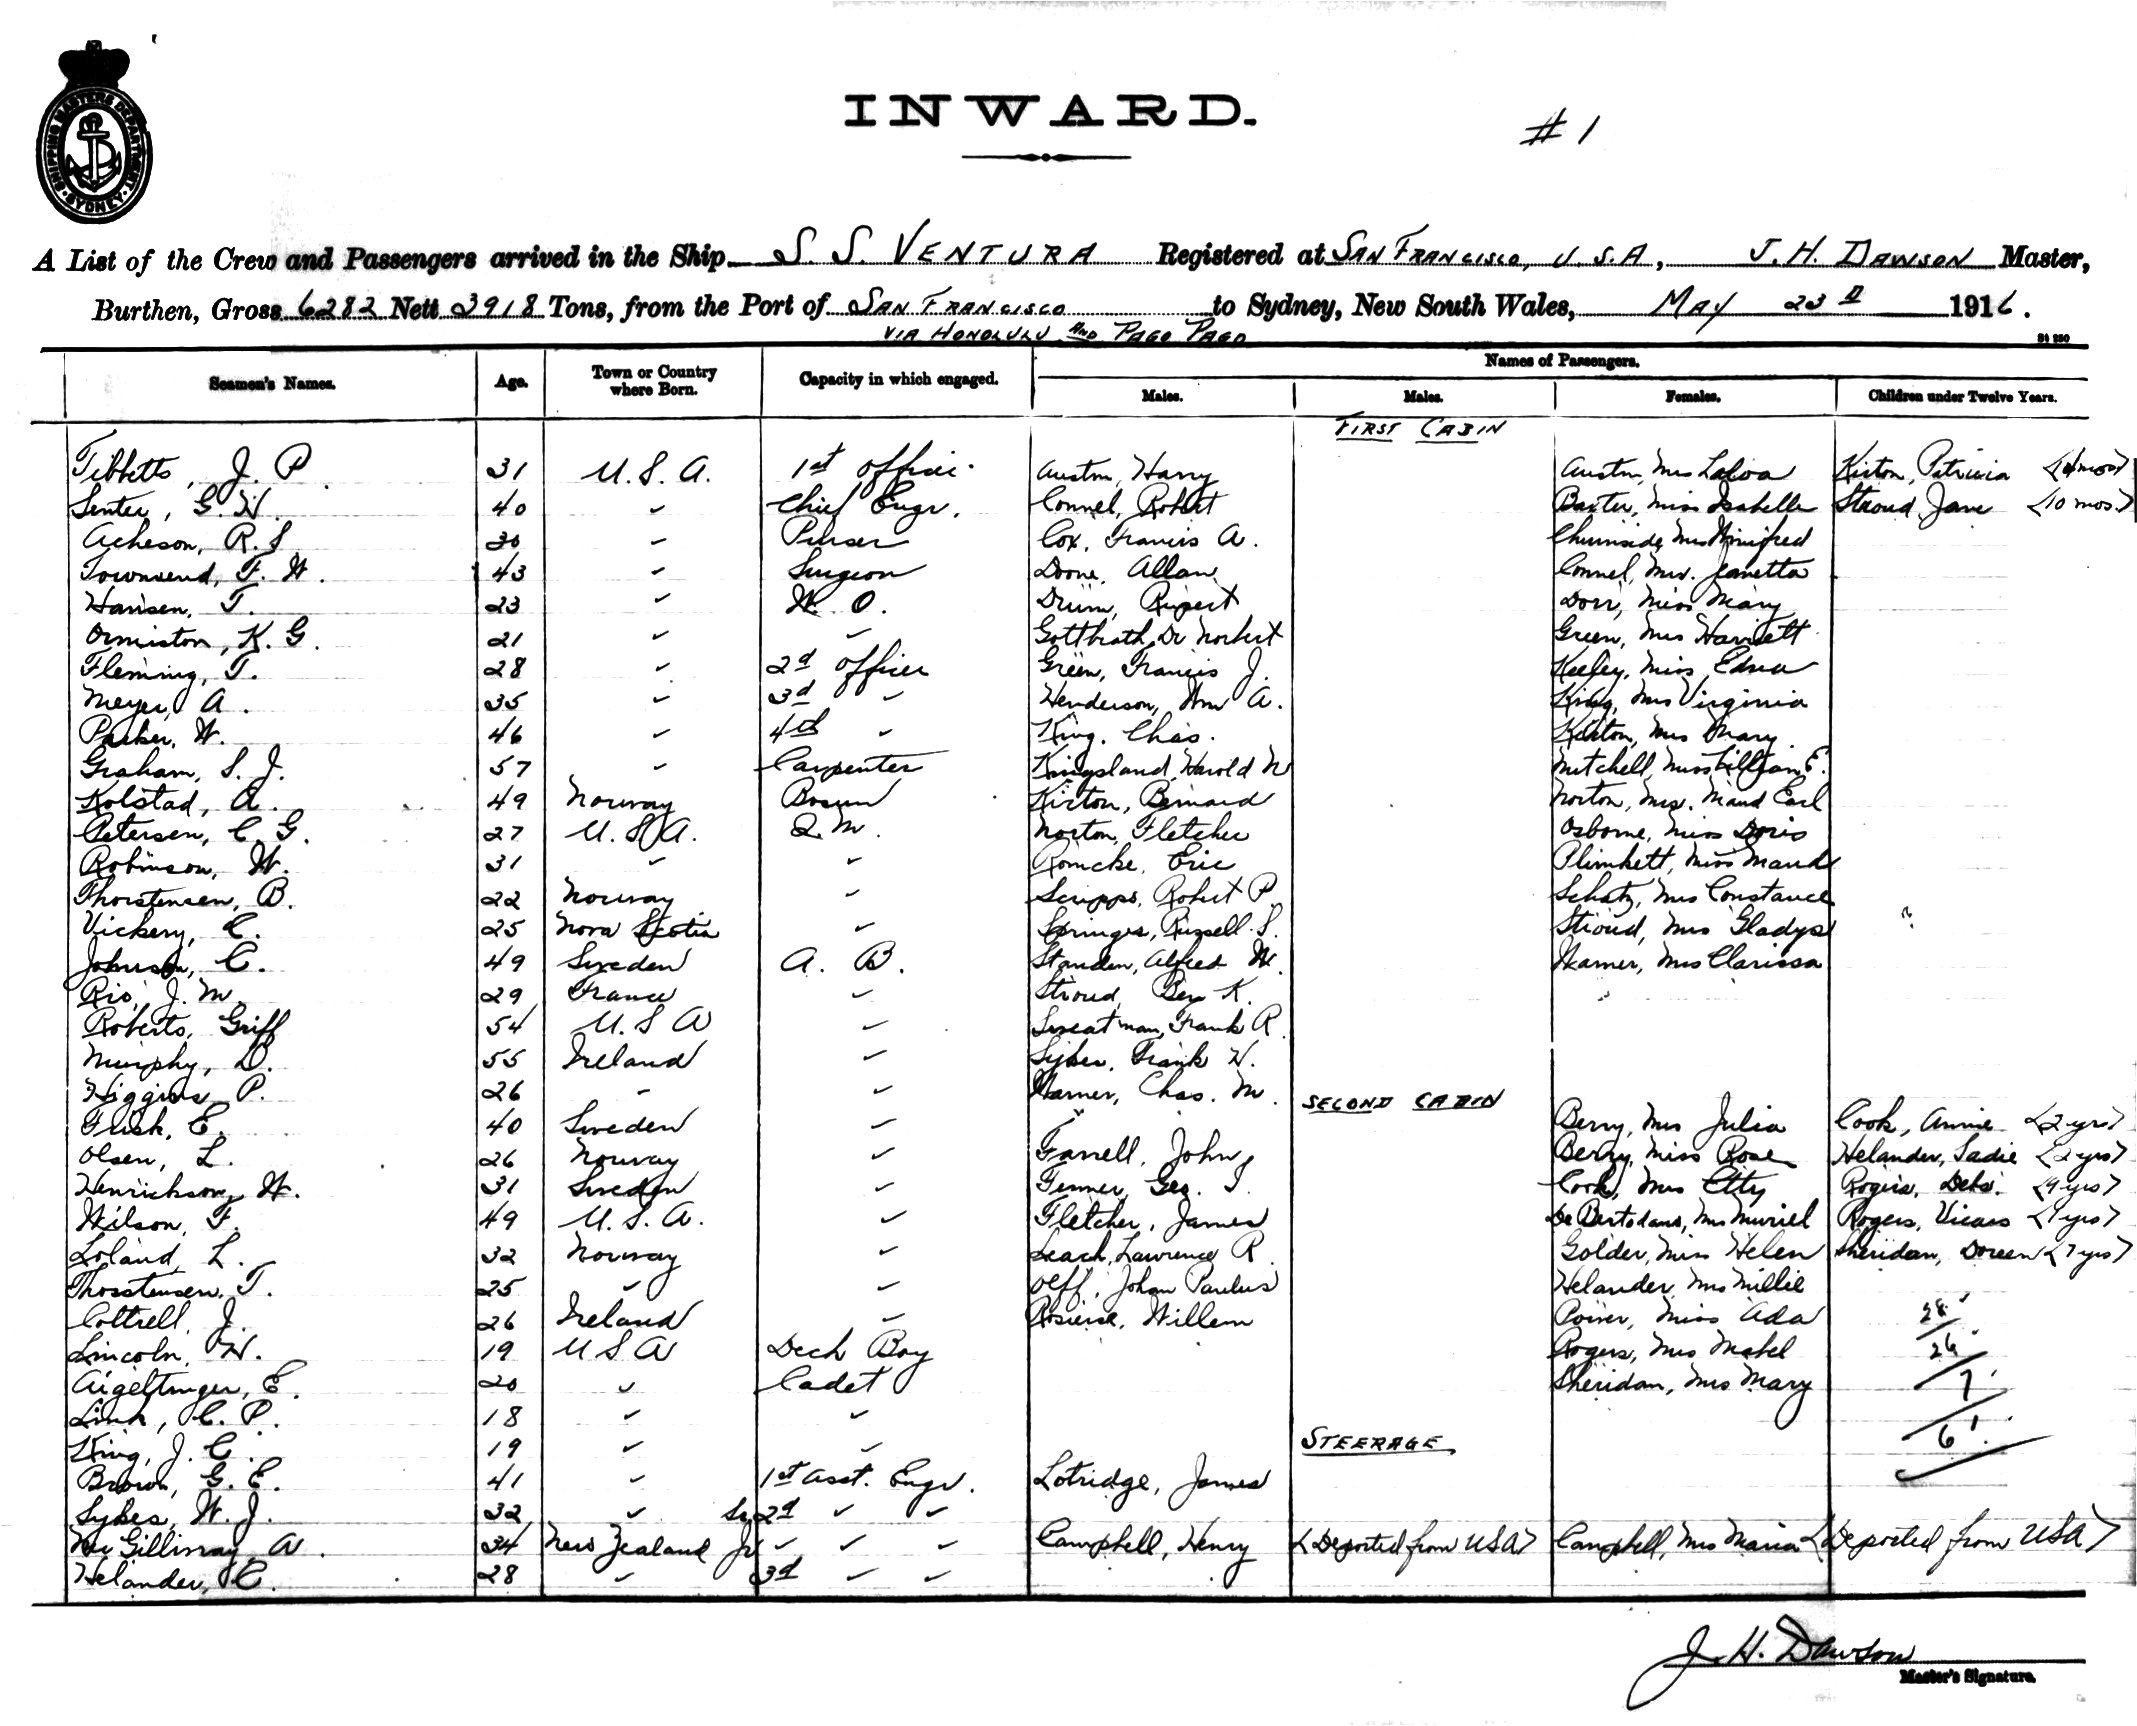 SHIPPING MASTERS DEPARTMENT
SYDNEY
INWARD.
# 1
A List of the Crew and Passengers arrived in the Ship S. S. VENTURA Registered at SAN FRANCISCO, U.S.A, J.H. DAWSON Master,
Burthen, Gross 6282 Nett 3918 Tons, from the Port of SAN FRANCISCO to Sydney, New South Wales, MAY 23D 1916.
VIA HONOLULU AND PAGO PAGO
Names of Passengers.
Seamen's Names. Age. Town or Country where Born. Capacity in which engaged. Males. Males. Females. Children under Twelve Years.
FIRST CABIN
Tibbetts, J. P 31 U. S. A. 1st Officer Austin, Harry Austin, Mrs Kirton, Patricia
Senter, G. W. 40 " Chief Engr. Connel, Robert Baxter, Miss Isabelle Stroud, Jane (10 mos.)
Acheson, R. S 30 " Purser Cox, Francis A. Chirnside, Mrs Winifred
Townsend, F. W. 43 " Surgeon Doone, Allan Connel, Mrs. Jeanetta
Hansen, T. 23 " W. O. Drum, Rupert Dorr, Miss Mary
Ormiston, K. G. 21 " " Dr Norbert Green, Mrs Harriett
Fleming, T. 28 " 2d Officer Green, Francis J. Keeley, Miss Edna
Meyer, A. 35 " 3d " Henderson, Wm A. King, Mrs Virginia
Parker, W. 46 " 4th " King, Chas. Kirton, Mrs Mary
Graham, S. J. 57 " Carpenter Kingsland, Harold W Mitchell, Miss Lillian E.
Kolstad, A. 49 Norway Bosun Kirton, Bernard Norton, Mrs. Maud Earl
Petersen, C. G. 27 U. S. A. Q. M. Norton, Fletcher Osborne, Miss Doris
Robinson, W. 31 " " Romcke, Eric Plunkett, Miss Maude
Thorstensen, B. 22 Norway " Scripps, Robert P. Schatz, Mrs Constance
Vickery, C. 25 Nova Scotia " Springer, Russell S. Stroud, Mrs Gladys
Johnson, C. 49 Sweden A. B. Standen, Alfred W. Warner, Mrs Clarissa
Rio, J. M. 29 France " Stroud, Ben K.
Roberts, Griff 54 U. S A " Sweatman, Frank R
Murphy, D. 55 Ireland " Frank W.
Higgins, P. 26 " " Warner, Chas. M.
SECOND CABIN
Frisk, E. 40 Sweden " Berry, Mrs Julia Cook, Annie (2 yrs)
Olsen, L. 26 Norway " Farrell, John Berry, Miss Rose Helander, Sadie (2 yrs)
Henrickson, W. 31 Sweden " Fenner, Geo. I. Cook, Mrs Etty Rogers, (9 yrs)
Wilson, F. 49 U. S. A. " Fletcher, James De Bertodano, Mrs Muriel Rogers, Vicars
Loland, L. 32 Norway " Leach, Lawrence R. Golder, Miss Helen Sheridan, Doreen (7 yrs)
Thorstensen, T. 25 " " Olff, Johan Paulus Helander, Mrs Millie
Cottrell, J. 26 Ireland " Rosierse, Willem Poiver, Miss Ada 28
Lincoln, W. 19 U S A Deck Boy Rogers, Mrs Mabel 26
Aigeltinger, E. 20 " Cadet Sheridan, Mrs Mary 7
Link, C. P. 18 " " 61
King, J. C. 19 " "
STEERAGE
Brown, G. E. 41 " 1st Asst. Engr. Lotridge, James
Sykes, W. J. 32 " Sr 2d " "
McGillivray, A. 34 New Zealand Jr " " " Campbell, Henry (Deported from USA) Campbell, Mrs Maria (Deported from USA)
Helander, C. 28 " 3d " "
J. H. Dawson
Master's Signature.